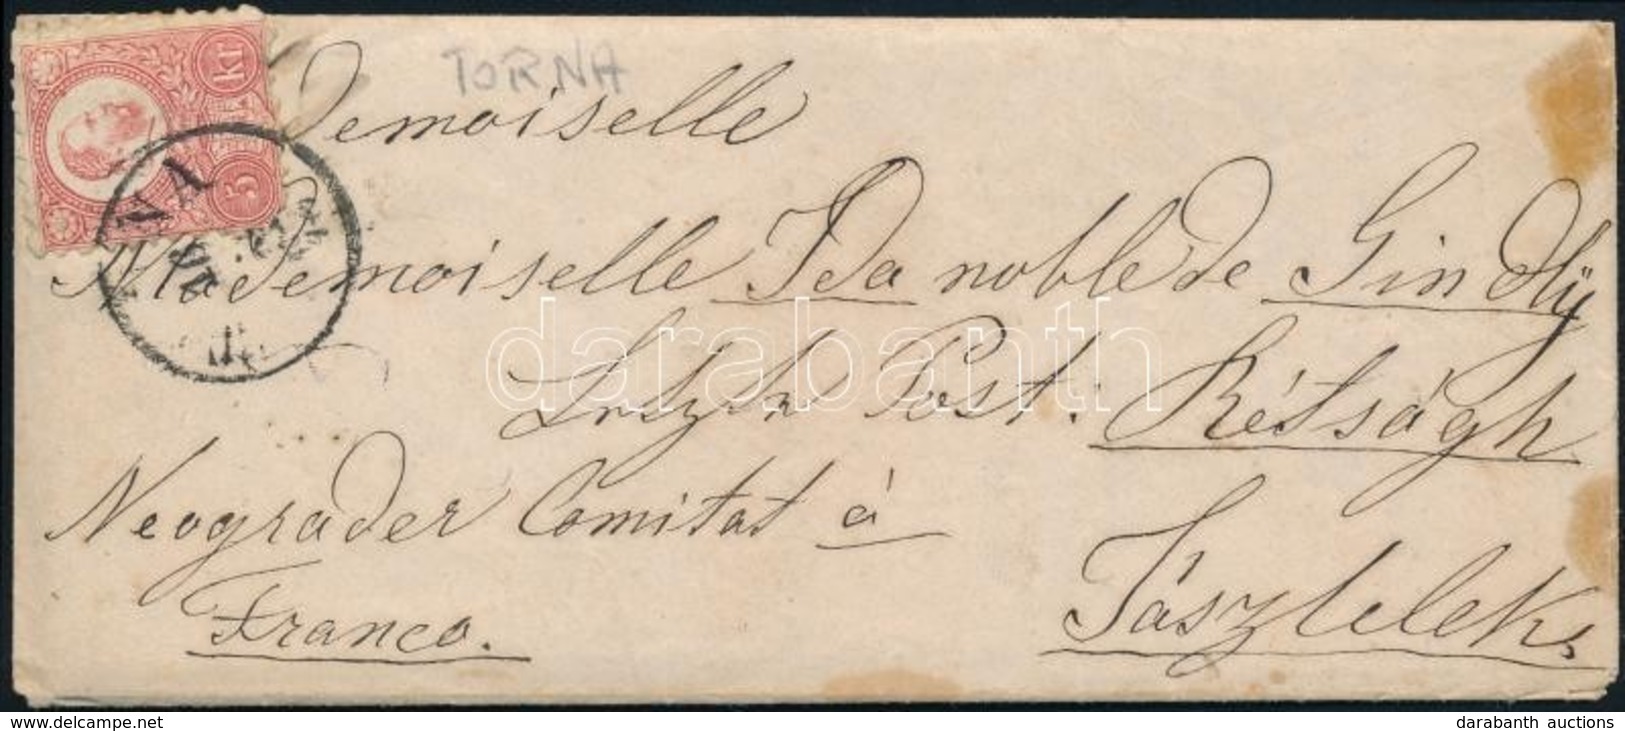 TORNA
Demoiselle
kr
5
NA
Mademoiselle Ida noble de Gindly
Post: Rétságh
Neograder Comitat á
Jásztelek
Franco.
darabanth
www.delcampe.net
darabanth auctions